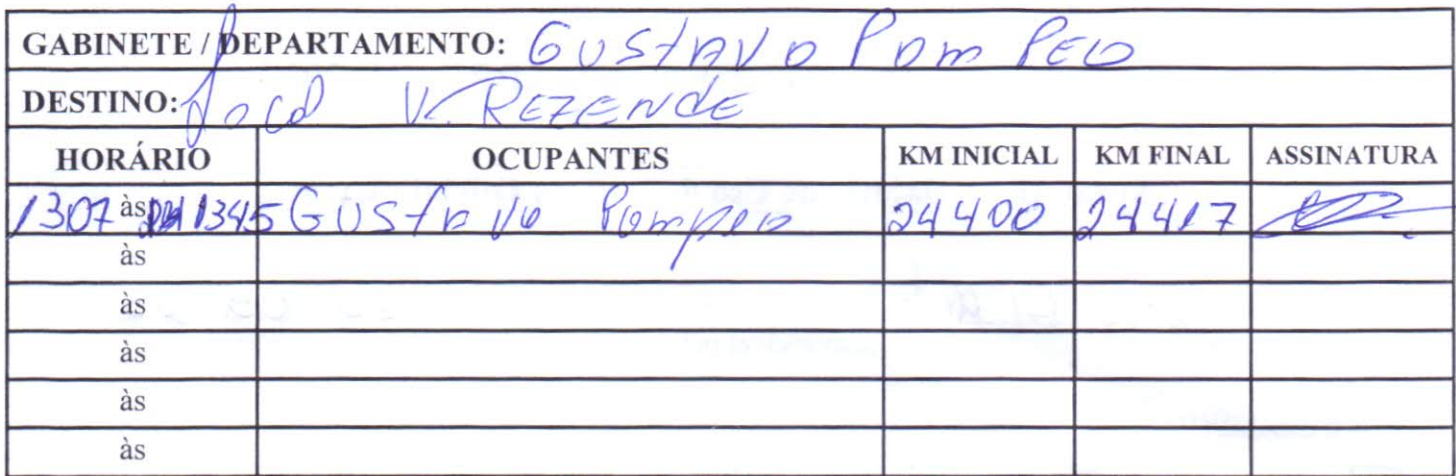 GABINETE / DEPARTAMENTO: GUStAVO POmPEO
DESTINO: Local V. REZENDE
HORÁRIO OCUPANTES KM INICIAL KM FINAL ASSINATURA
1307 às 1345 GUStAVO Pompeo 24400 24417
às
às
às
às
às